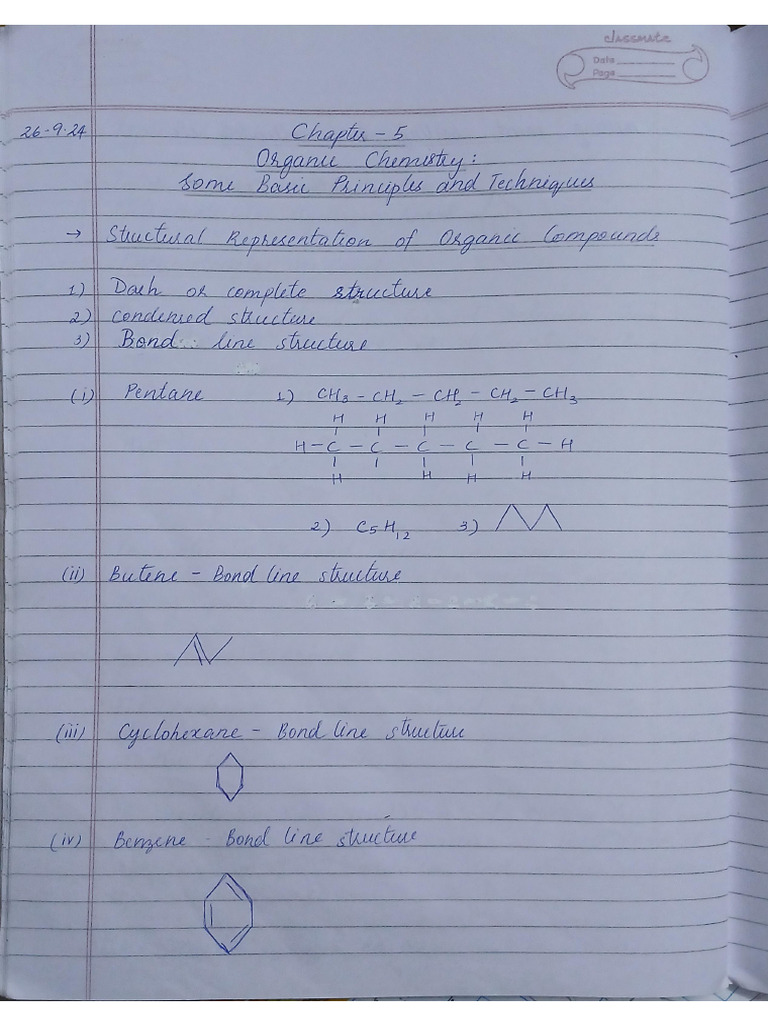 classmate
Date
Page
26-9-24
Chapter - 5
Organic Chemistry:
Some Basic Principles and Techniques
→ Structural Representation of Organic Compounds
1) Dash or complete structure
2) condensed structure
3) Bond line structure
(i) Pentane 1) CH3 - CH2 - CH2 - CH2 - CH3
H H H H H
H - C - C - C - C - C - H
H H H H
2) C5H12 3)
(ii) Butene - Bond line structure
(iii) Cyclohexane - Bond line structure
(iv) Benzene - Bond line structure